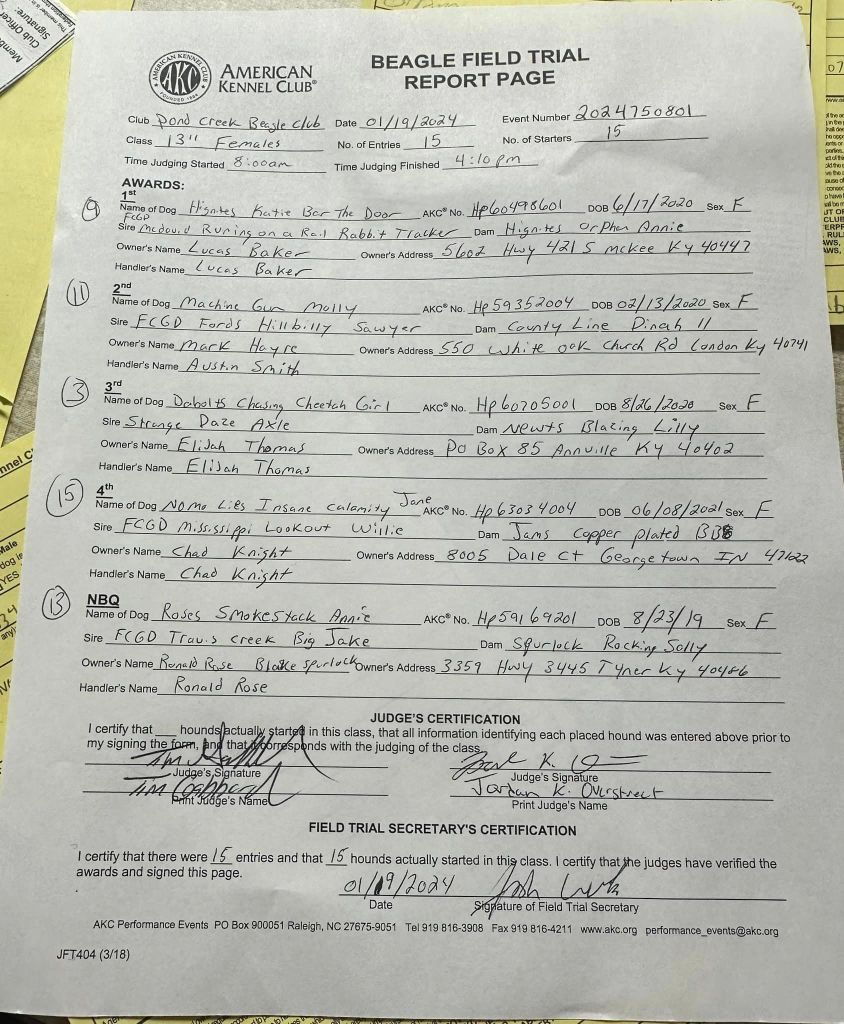 AMERICAN KENNEL CLUB®
AKC
FOUNDED 1884
BEAGLE FIELD TRIAL
REPORT PAGE
Club Pond Creek Beagle Club Date 01/19/2024 Event Number 2024750801
Class 13" Females No. of Entries 15 No. of Starters 15
Time Judging Started 8:00am Time Judging Finished 4:10 pm
AWARDS:
1st
9 Name of Dog Hignites Katie Bar The Door AKC® No. Hp60498601 DOB 6/17/2020 Sex F
FCGD
Sire McDavid Runing on a Rail Rabbit Tracker Dam Hignites Orphan Annie
Owner's Name Lucas Baker Owner's Address 5602 Hwy 421 S McKee Ky 40447
Handler's Name Lucas Baker
2nd
11 Name of Dog Machine Gun Molly AKC® No. Hp59352004 DOB 02/13/2020 Sex F
Sire FCGD Fords Hillbilly Sawyer Dam County Line Dinah 11
Owner's Name Mark Hayre Owner's Address 550 White oak Church Rd London Ky 40741
Handler's Name Austin Smith
3rd
3 Name of Dog Debolts Chasing Cheetah Girl AKC® No. Hp60705001 DOB 8/26/2020 Sex F
Sire Strange Daze Axle Dam Newts Blazing Lilly
Owner's Name Elijah Thomas Owner's Address Po Box 85 Annville Ky 40402
Handler's Name Elijah Thomas
4th
15 Name of Dog Nomo Lies Insane Calamity Jane AKC® No. Hp63034004 DOB 06/08/2021 Sex F
Sire FCGD Mississippi Lookout Willie Dam Jams Copper plated
Owner's Name Chad Knight Owner's Address 8005 Dale ct Georgetown IN 47122
Handler's Name Chad Knight
NBQ
13 Name of Dog Roses Smokestack Annie AKC® No. Hp59169201 DOB 8/23/19 Sex F
Sire FCGD Travis creek Big Jake Dam Spurlock Rocking Sally
Owner's Name Ronald Rose Blake Spurlock Owner's Address 3359 Hwy 3445 Tyner Ky 40486
Handler's Name Ronald Rose
JUDGE'S CERTIFICATION
I certify that ___ hounds actually started in this class, that all information identifying each placed hound was entered above prior to
my signing the form, and that it corresponds with the judging of the class.
Judge's Signature Judge's Signature
Tim Gabbard Jordan K. Overstreet
Print Judge's Name Print Judge's Name
FIELD TRIAL SECRETARY'S CERTIFICATION
I certify that there were 15 entries and that 15 hounds actually started in this class. I certify that the judges have verified the
awards and signed this page.
01/19/2024
Date Signature of Field Trial Secretary
AKC Performance Events PO Box 900051 Raleigh, NC 27675-9051 Tel 919 816-3908 Fax 919 816-4211 www.akc.org performance_events@akc.org
JFT404 (3/18)